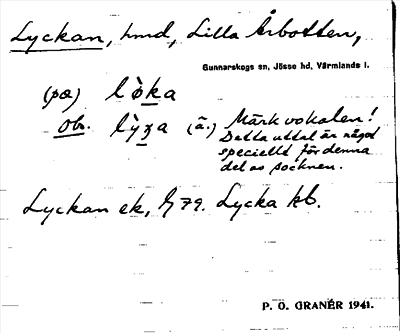 Lyckan, hmd, Lilla Årbotten,
Gunnarskogs sn, Jösse hd, Värmlands l.
(pæ) lo̊ka
Obs. lỳʒa (ä.) Märk vokalen!
Detta uttal är något
speciellt för denna
del av socknen.
Lyckan ek, 79. Lycka kb.
P. O. GRANÉR 1941.